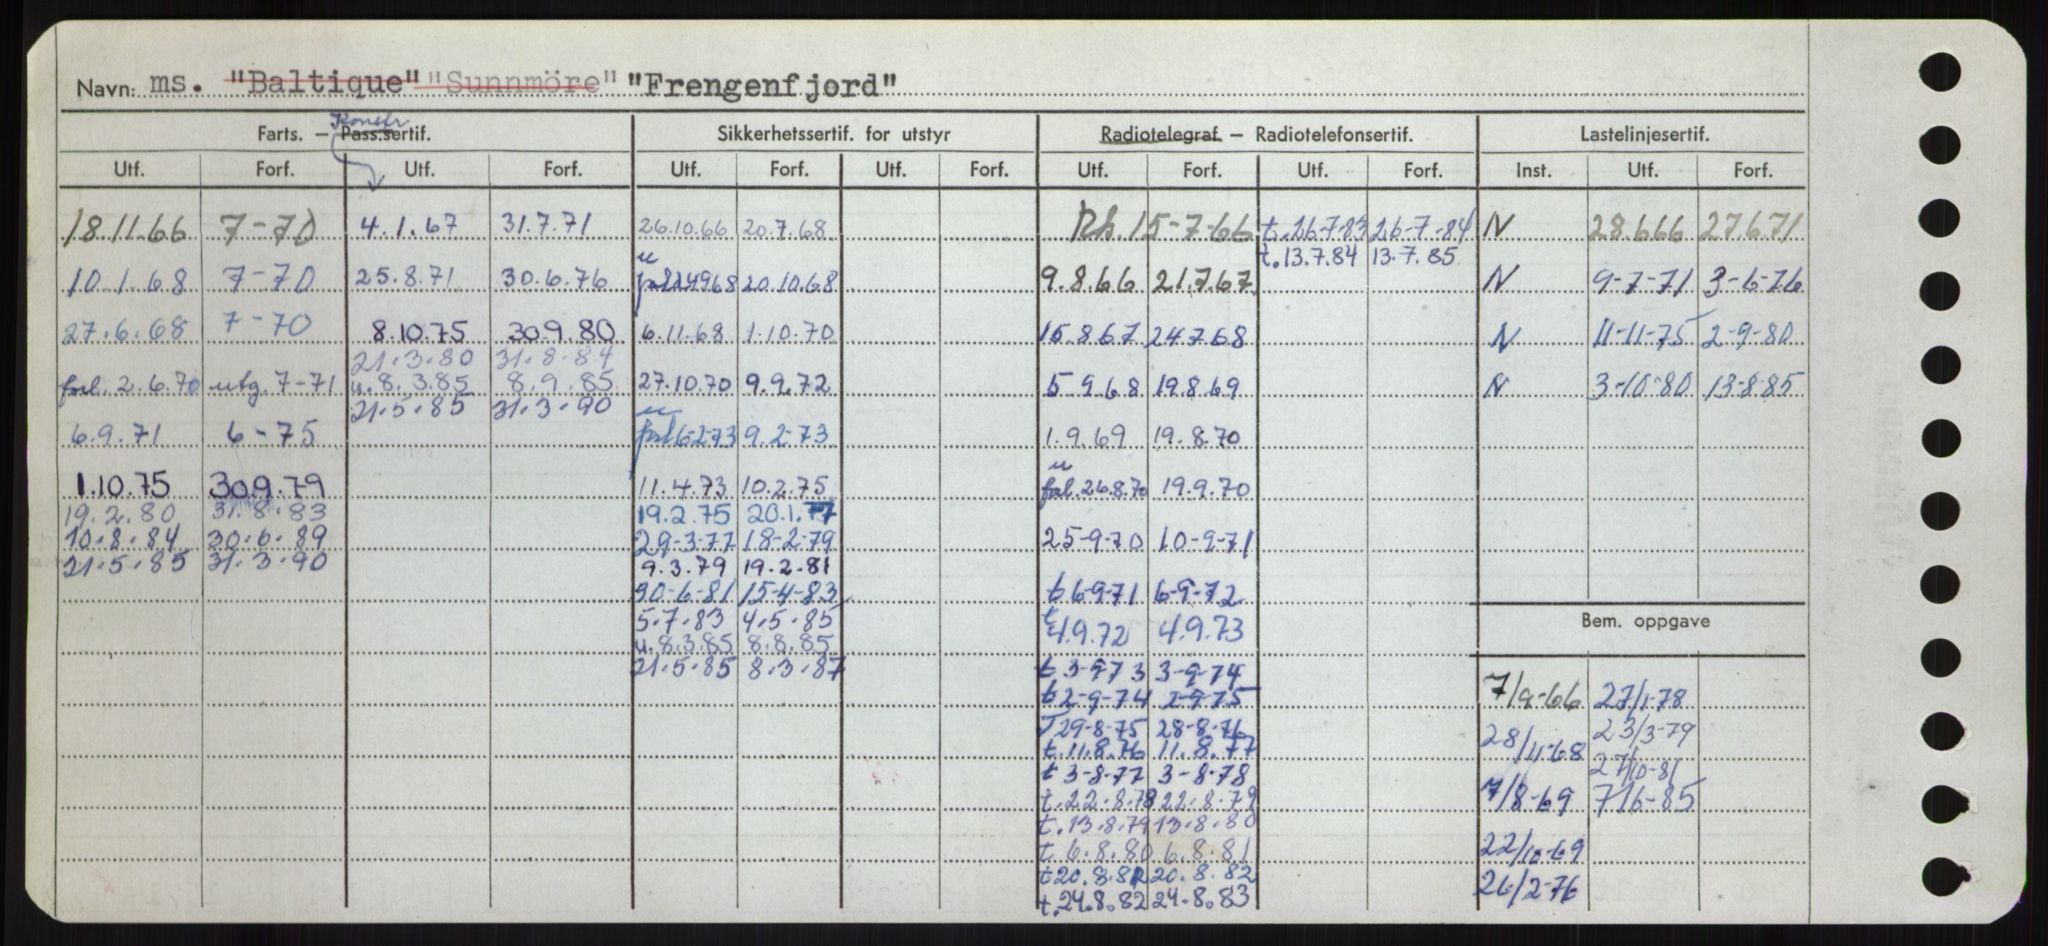 Navn: ms. "Baltique" "Sunnmöre" "Frengenfjord"
Konstr.
Farts. — Pass.sertif. Sikkerhetssertif. for utstyr Radiotelegraf — Radiotelefonsertif. Lastelinjesertif.
Utf. Forf. Utf. Forf. Utf. Forf. Utf. Forf. Utf. Forf. Utf. Forf. Inst. Utf. Forf.
18.11.66 7-70 4.1.67 31.7.71 26.10.66 20.7.68 Rh. 15-7-66 t. 26-7-83 26-7-84 N 28.6.66 27.6.71
t. 13.7.84 13.7.85
u
10.1.68 7-70 25.8.71 30.6.76 20.10.68 9.8.66 21.7.67 N 9-7-71 3-6-76
27.6.68 7-70 8.10.75 30.9.80 6.11.68 1.10.70 15.8.67 24.7.68 N 11-11-75 2-9-80
21.3.80 31.8.84
forl. 2.6.70 utg. 7-71 u. 8.3.85 8.9.85 27.10.70 9.9.72 5.9.68 19.8.69 N 3-10-80 13-8-85
21.5.85 31.3.90 u
6.9.71 6-75 forl 6-2-73 9.2.73 1.9.69 19.8.70
u
1.10.75 30.9.79 11.4.73 10.2.75 fol. 26.8.70 19.9.70
19.2.80 31.8.83 19.2.75 20.1.77
10.8.84 30.6.89 29-3-77 18-2-79 25-9-70 10-9-71
21.5.85 31.3.90 9.3.79 19.2.81
30-6-81 15-4-83 t 6-9-71 6-9-72
5.7.83 4.5.85 t 4.9.72 4.9.73
Bem. oppgave
u. 8.3.85 8.8.85
21.5.85 8.3.87 t 3-9-73 3-9-74
t 2-9-74 2-9-75 7/9-66 27/1-78
T 29-8-75 28-8-76 23/3-79
t. 11.8.76 11.8.77 28/11-68
t 3-8-77 3-8-78 27/10-81
t. 22.8.78 22.8.79 7/8-69 7/6-85
t. 13.8.79 13.8.80
t. 6.8.80 6.8.81 22/10-69
t 20.8.81 20.8.82 26/2-76
t. 24.8.82 24.8.83